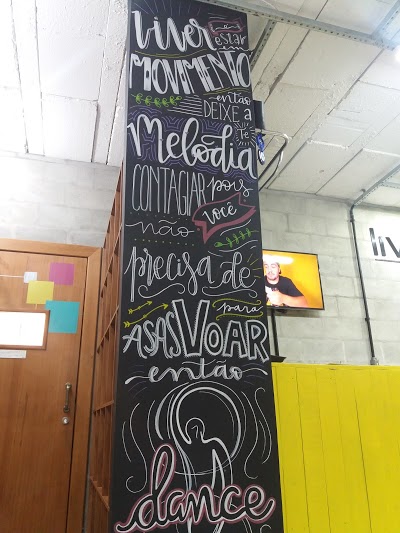 Viver
é
estar
em
MOVIMENTO
então
DEIXE a
Melodia
te
CONTAGIAR pois
você
não
precisa de
ASAS para
VOAR
então
dance
liv